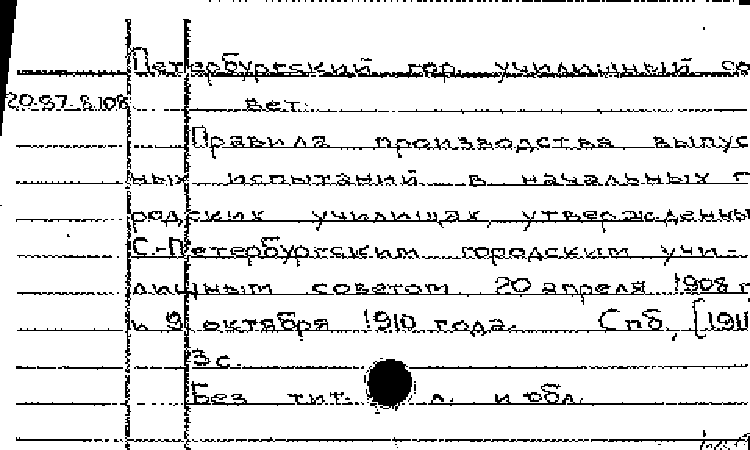 Петербургский гор. училищный со
20-87-8.108
вет.
Правила производства выпус
ных испытаний в начальных г
родских училищах, утвержденны
С.-Петербургским городским учи-
лищным советом 20 апреля 1908 г
и 9 октября 1910 года. Спб, [191
3 с.
Без тит. л. и обл.